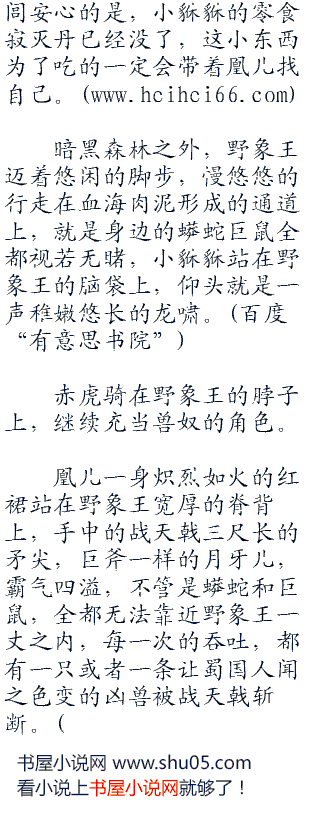 闾安心的是，小貅貅的零食
寂灭丹已经没了，这小东西
为了吃的一定会带着凰儿找
自己。(www.hcihci66.com)
暗黑森林之外，野象王
迈着悠闲的脚步，慢悠悠的
行走在血海肉泥形成的通道
上，就是身边的蟒蛇巨鼠全
都视若无睹，小貅貅站在野
象王的脑袋上，仰头就是一
声稚嫩悠长的龙啸。(百度
“有意思书院”)
赤虎骑在野象王的脖子
上，继续充当兽奴的角色。
凰儿一身炽烈如火的红
裙站在野象王宽厚的脊背
上，手中的战天戟三尺长的
矛尖，巨斧一样的月牙儿，
霸气四溢，不管是蟒蛇和巨
鼠，全都无法靠近野象王一
丈之内，每一次的吞吐，都
有一只或者一条让蜀国人闻
之色变的凶兽被战天戟斩
断。(
书屋小说网 www.shu05.com
看小说上书屋小说网就够了！